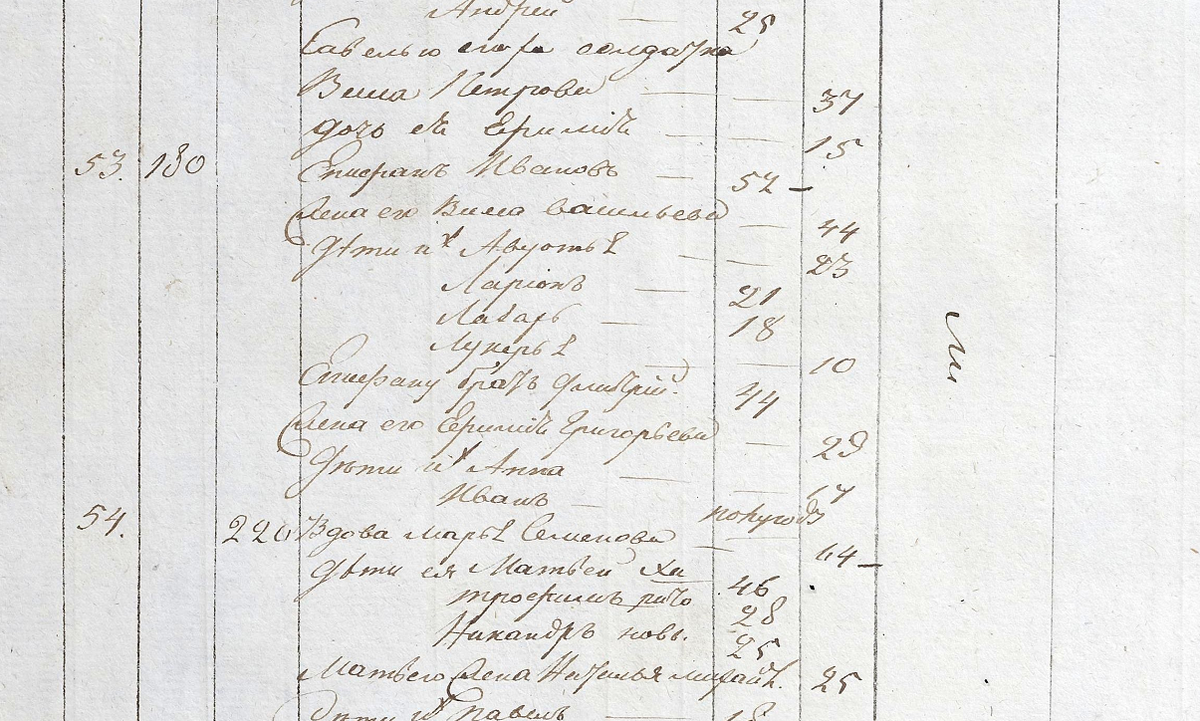 Андрей — 25
Савелью снова солдатка
Васса Петрова — 37
дочь её Ефимiя 15
53. 180 Епифанъ Ивановъ — 52 –
Жена его Васса Васильева — 44
Дѣти их Авдотья — 23
Ларiонъ — 21
Лазарь — 18
Лукерья — 10
Епифану братъ Дмитрiй. 44
Жена его Ефимiя Григорьева — 29
Дѣти их Анна — 17
Иванъ — полугода
54. 220 Вдова Марья Семенова — 64 –
Дѣти ея Матвей Ха 46
трофимъ рито 28
Никандръ новы. 25
Матвея Жена Наталья Михайл. 25
Дѣти их Павелъ — 18
Ми